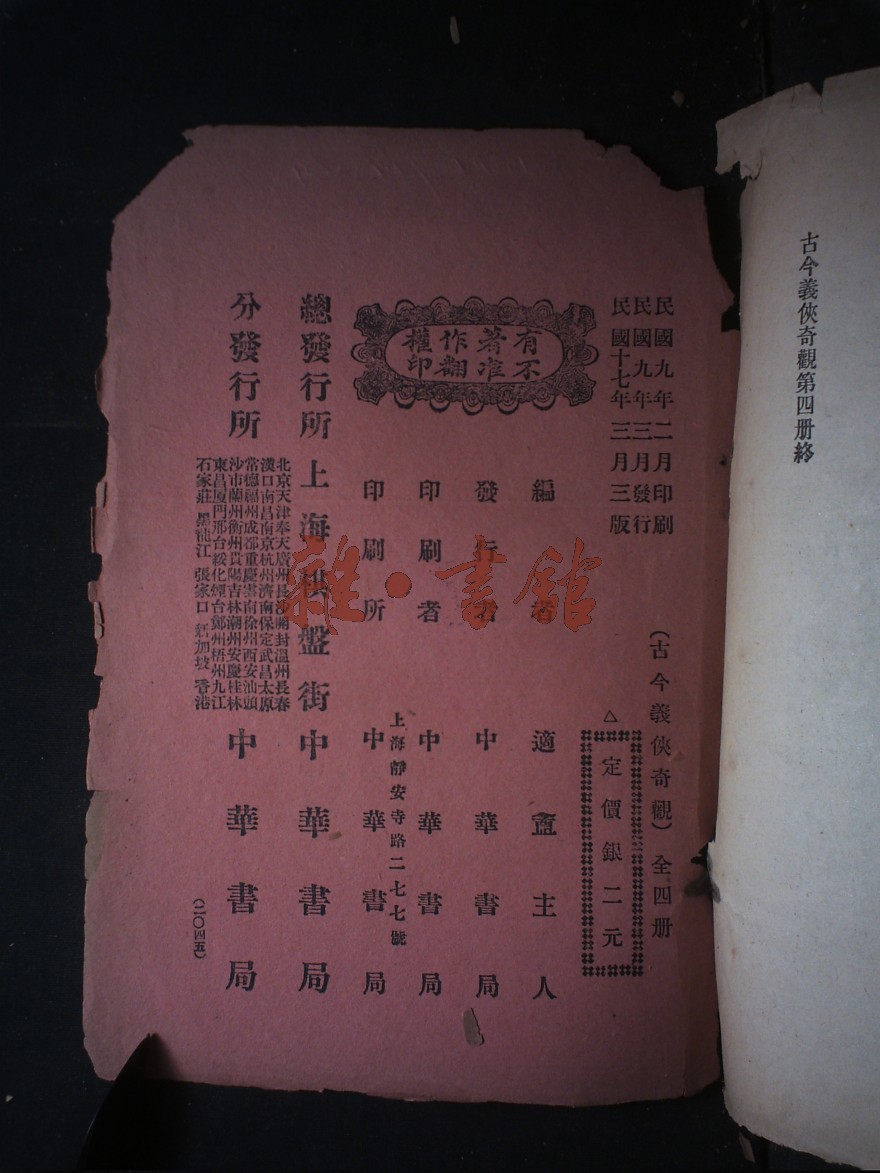 古今義俠奇觀第四册終
民國九年二月印刷
民國九年三月發行
民國十七年三月三版
(古今義俠奇觀)全四册
△定價銀二元
有著作權
不准翻印
編者 適盦主人
發行者 中華書局
印刷者 中華書局
印刷所 上海靜安寺路二七七號
中華書局
總發行所 上海棋盤街 中華書局
分發行所
北京天津奉天廣州長沙開封溫州長春
漢口南昌南京杭州濟南保定武昌太原
常德福州成都重慶雲南徐州西安汕頭
沙市蘭州衡州貴陽吉林潮州安慶桂林
東昌厦門邢台綏化煙台鄭州梧州九江
石家莊 黑龍江 張家口 新加坡 香港
中華書局
(二〇四五)
雜·書館